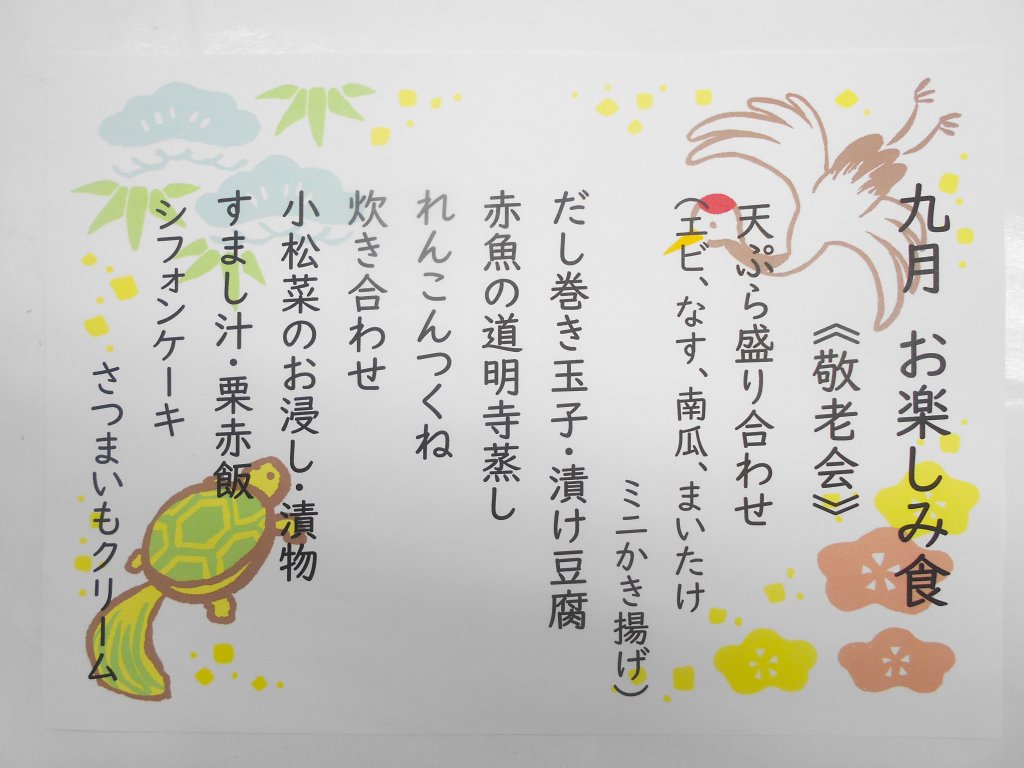 九月 お楽しみ食
《敬老会》
天ぷら盛り合わせ
(エビ、なす、南瓜、まいたけ
ミニかき揚げ)
だし巻き玉子・漬け豆腐
赤魚の道明寺蒸し
れんこんつくね
炊き合わせ
小松菜のお浸し・漬物
すまし汁・栗赤飯
シフォンケーキ
さつまいもクリーム